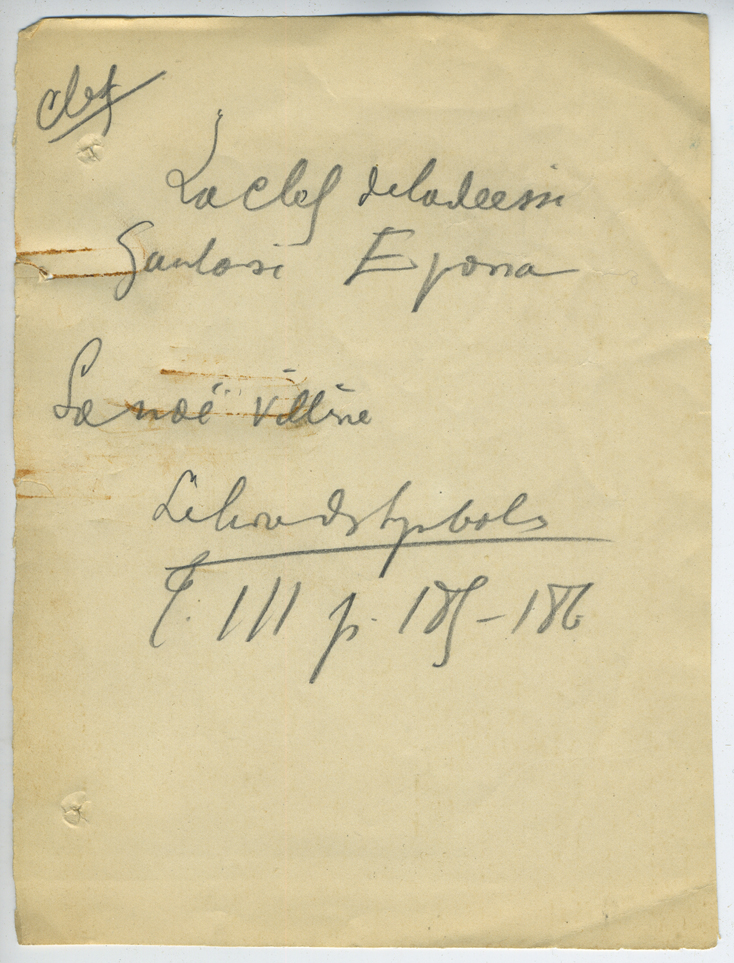 clef
La clef de la deesse
Gauloise Epona
Lanoë Villène
Le livre des symboles
T. III p. 185-186